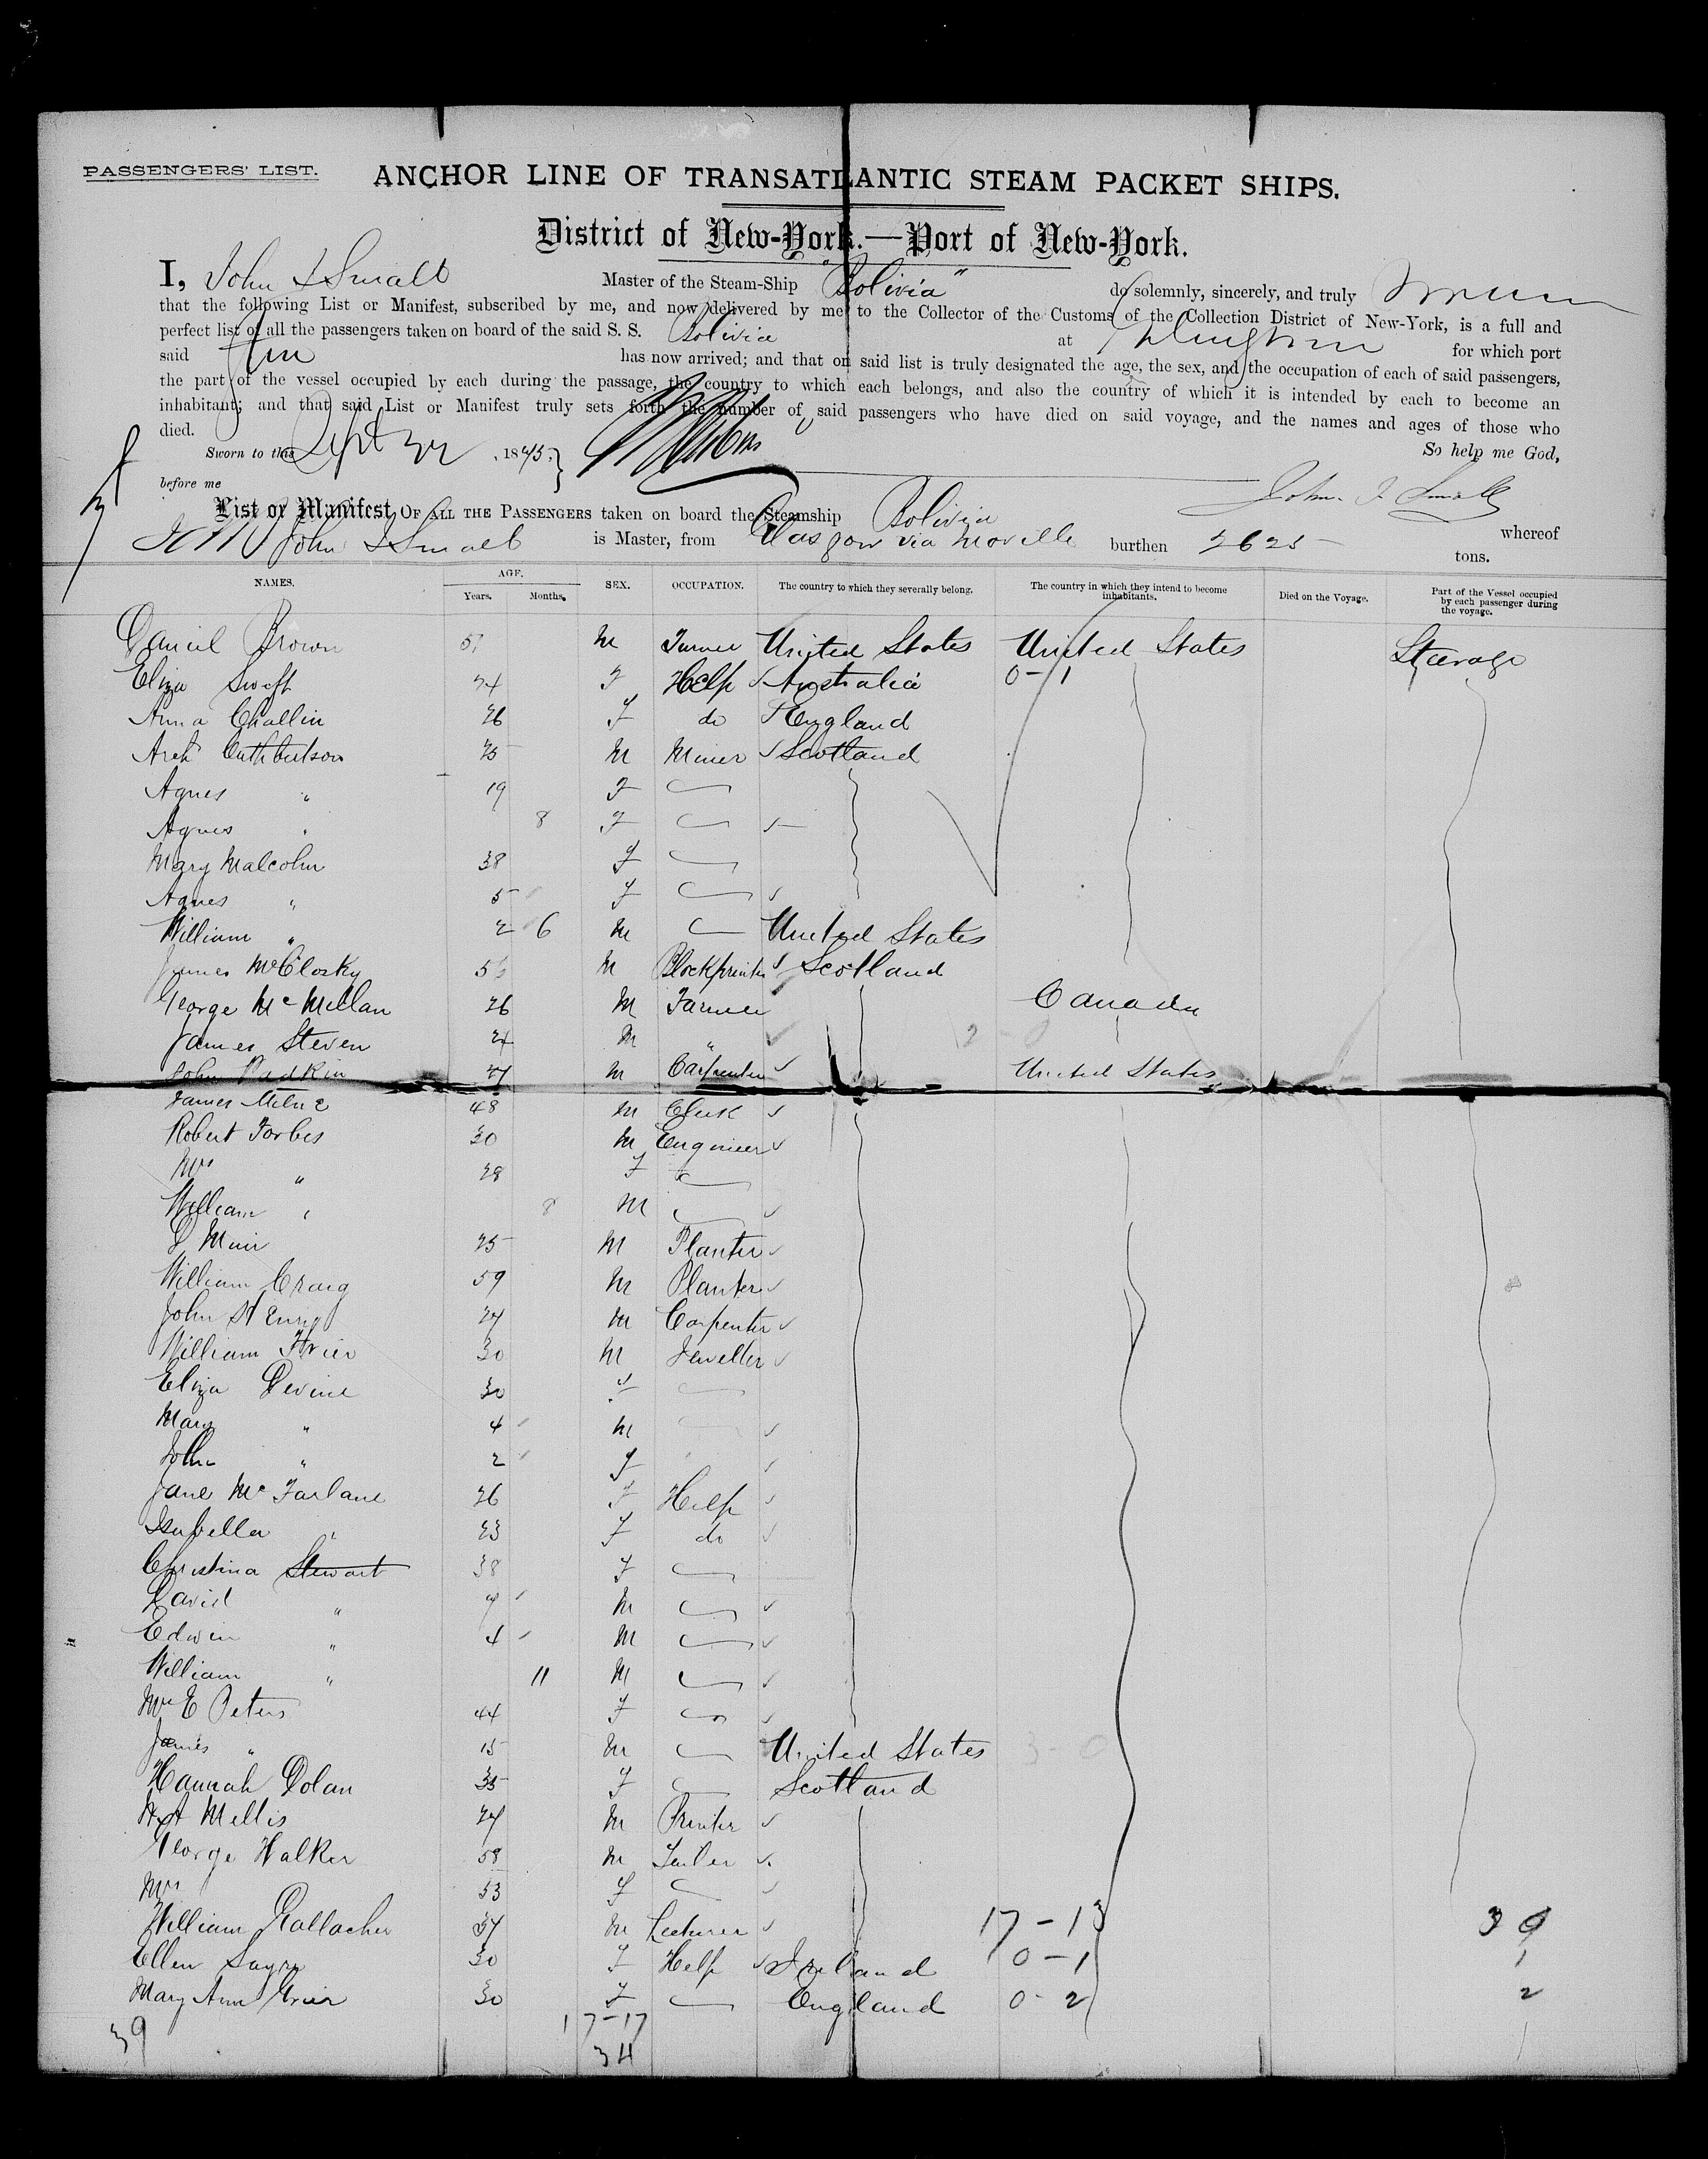 PASSENGERS' LIST.
ANCHOR LINE OF TRANSATLANTIC STEAM PACKET SHIPS.
District of New-York.—Port of New-York.
I, John Small Master of the Steam-Ship "Bolivia" do solemnly, sincerely, and truly
that the following List or Manifest, subscribed by me, and now delivered by me to the Collector of the Customs of the Collection District of New-York, is a full and
perfect list of all the passengers taken on board of the said S. S. Bolivia at for which port
said has now arrived; and that on said list is truly designated the age, the sex, and the occupation of each of said passengers,
the part of the vessel occupied by each during the passage, the country to which each belongs, and also the country of which it is intended by each to become an
inhabitant; and that said List or Manifest truly sets forth the number of said passengers who have died on said voyage, and the names and ages of those who
died.
So help me God,
Sworn to this Sept 18
before me
John Small
List or Manifest OF ALL THE PASSENGERS taken on board the Steamship Bolivia whereof
John Small is Master, from Glasgow via Moville burthen 2625 tons.
NAMES. AGE. Years. Months. SEX. OCCUPATION. The country to which they severally belong. The country in which they intend to become inhabitants. Died on the Voyage. Part of the Vessel occupied by each passenger during the voyage.
Daniel Brown M United States United States Steerage
Eliza Swift 24 F Help Australia 0-1
Anna Challin 26 F do England
Arch Cuthbertson 25 M Miner Scotland
Agnes " 19 F
Agnes " 8 F
Mary Malcolm 38 F
Agnes " 5 F
William " 2 6 M United States
James McClosky M Blockprinter Scotland
George Mc Millan 26 M Farmer Canada
James Steven M "
John M Carpenter United States
James Milne 48 M Clerk
Robert Forbes 30 M Engineer
Mrs " 28 F
William " 8 M
Muir 25 M Planter
William Craig 59 M Planter
John M Carpenter
William 30 M Jeweller
Eliza Devine 30 F
Mary " 4 M
John " 2 F
Jane Mc Farlane 26 F Help
Isabella " 23 F do
Christina Stewart 38 F
David " M
Edwin " 4 M
William " 11 M
Mrs E Peters 44 F
James " 15 M United States
Hannah Dolan 35 F Scotland
Mellis M Printer
George Walker 58 M
Mrs 53 F
William Gallacher M Lecturer 17-13 39
Ellen 30 F Help Ireland 0-1 1
Mary Ann Grier 30 F England 0-2 2
17-17
39
34